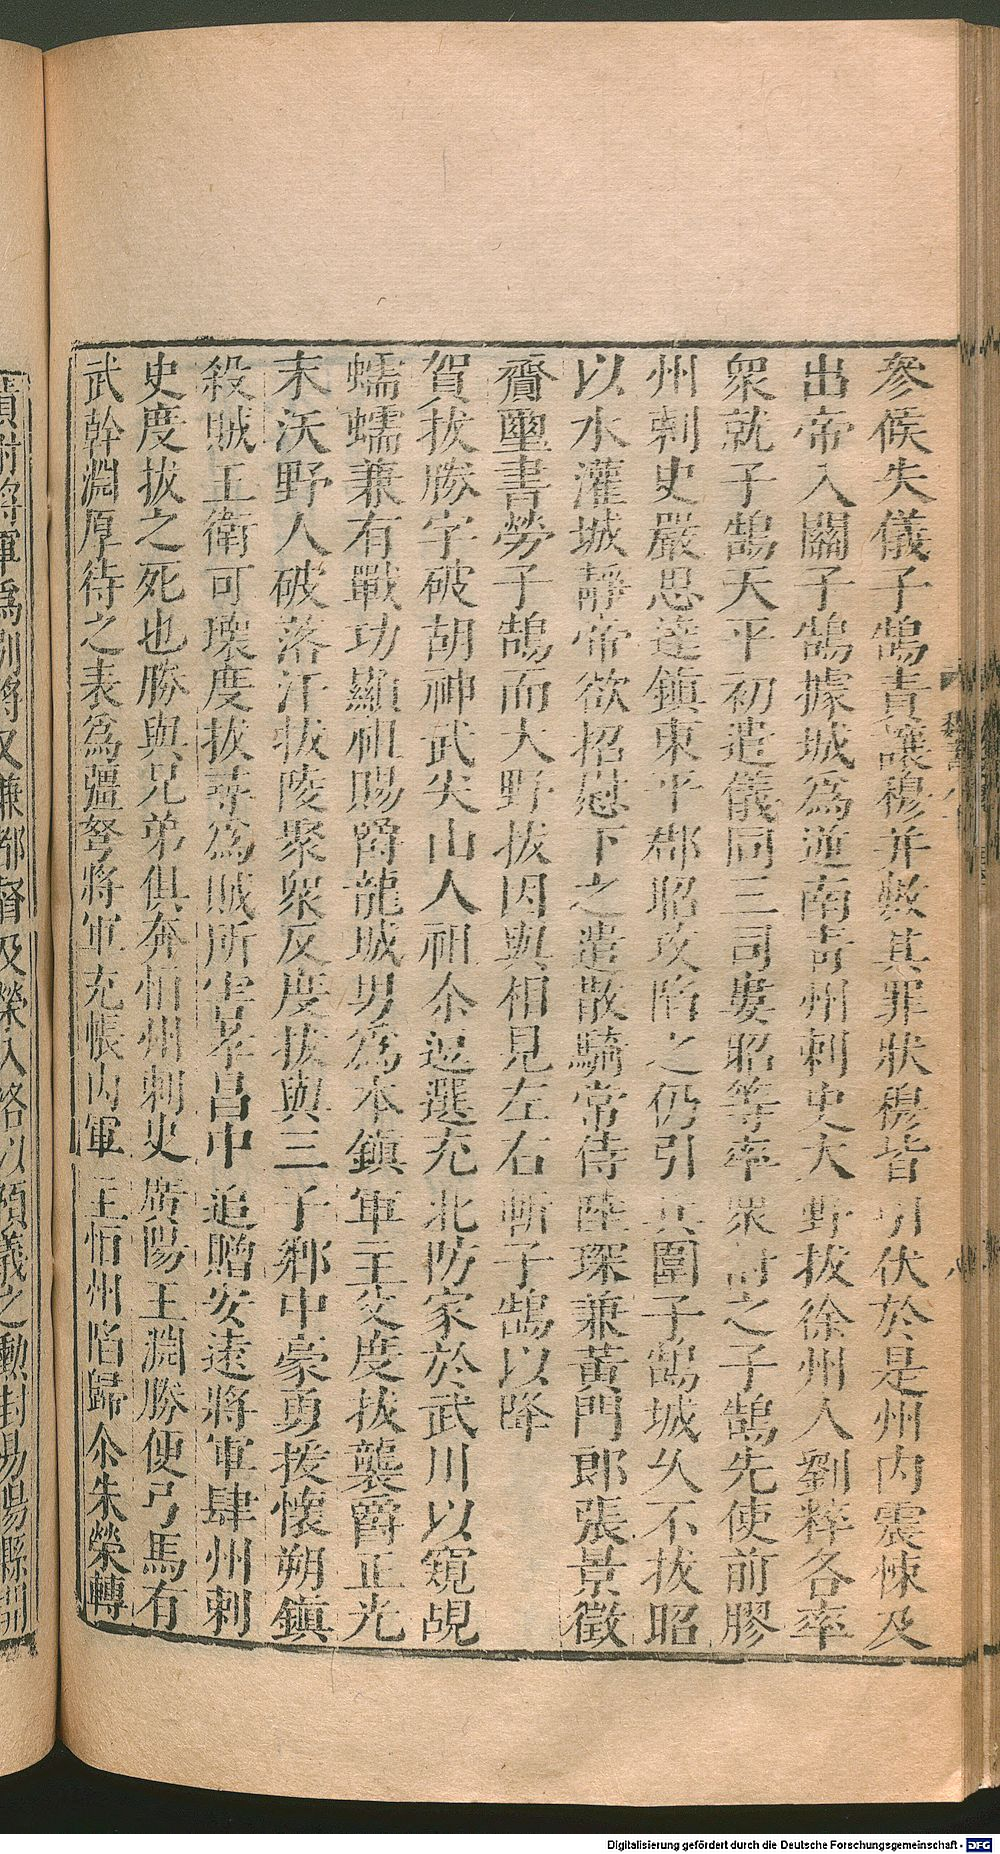 參候失儀子鵠責讓穆并數其罪狀穆皆引伏於是州内震悚及
出帝入關子鵠據城爲逆南青州刺史大野拔徐州人劉粹各率
衆就子鵠天平初遣儀同三司婁昭等率衆討之子鵠先使前膠
州刺史嚴思達鎮東平郡昭攻陷之仍引兵圍子鵠城久不拔昭
以水灌城靜帝欲招慰下之遣散騎常侍陸琛兼黃門郎張景徵
齎璽書勞子鵠而大野拔因與相見左右斬子鵠以降
賀拔勝字破胡神武尖山人祖尒逗選充北防家於武川以窺覘
蠕蠕兼有戰功顯祖賜爵龍城男爲本鎮軍主父度拔襲爵正光
末沃野人破落汗拔陵聚衆反度拔與三子鄉中豪勇援懷朔鎮
殺賊王衛可瓌度拔尋爲賊所害孝昌中追贈安遠將軍肆州刺
史度拔之死也勝與兄弟俱奔恒州刺史廣陽王淵勝便弓馬有
武幹淵厚待之表爲彊弩將軍充帳内軍主恒州陷歸尒朱榮轉
將軍爲別將又兼都督及榮入洛以預義之勳封易陽縣開
Digitalisierung gefördert durch die Deutsche Forschungsgemeinschaft - DFG